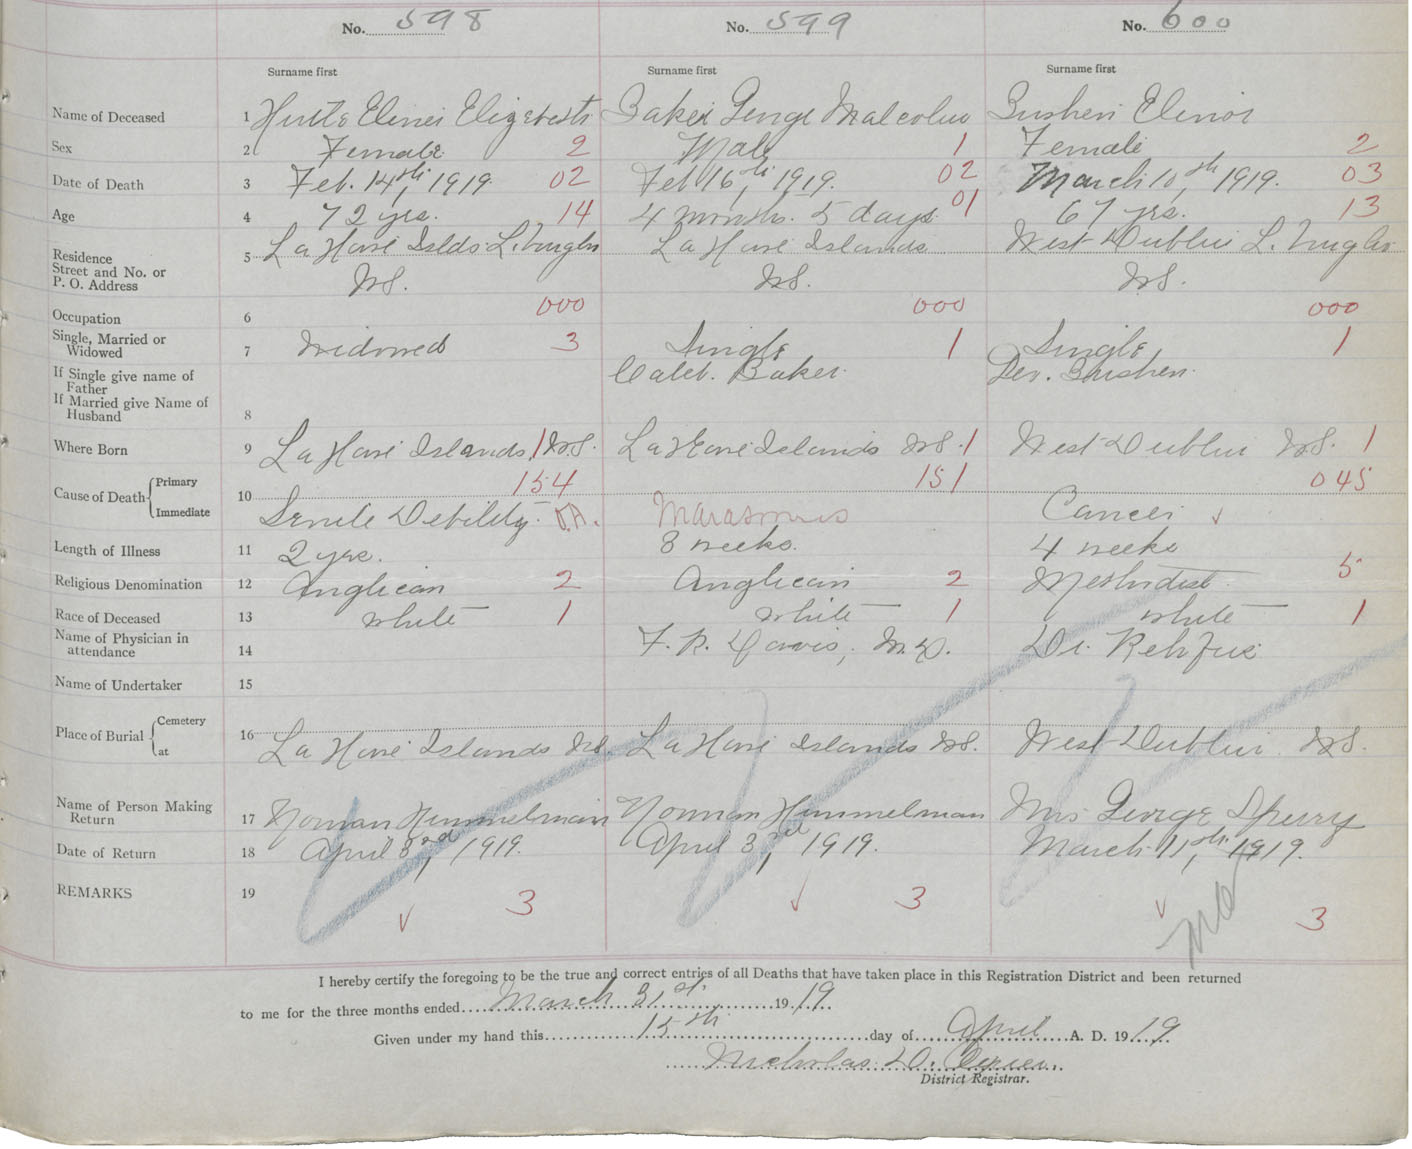 No. 598 No. 599 No. 600
Surname first Surname first Surname first
Name of Deceased 1 Elizabeth Baker George Malcolm Elinor
Sex 2 Female 2 Male 1 Female 2
Date of Death 3 Feb. 14th, 1919. 02 Feb 16th, 1919. 02 March 10th, 1919. 03
Age 4 72 yrs. 14 4 months. 5 days. 01 67 yrs. 13
Residence
Street and No. or
P. O. Address 5 La Have Islds L. La Have Islands West Dublin L.
NS. NS. NS.
Occupation 6 000 000 000
Single, Married or
Widowed 7 Widowed 3 Single 1 Single 1
If Single give name of
Father Caleb. Baker.
If Married give Name of
Husband 8
Where Born 9 La Have Islands, 1 NS. La Have Islands NS. 1 West Dublin NS. 1
Cause of Death Primary 154 151 045
Immediate 10 Senile Debility. Marasmus Cancer
Length of Illness 11 2 yrs. 3 weeks. 4 weeks
Religious Denomination 12 Anglican 2 Anglican 2 Methodist 5
Race of Deceased 13 White 1 White 1 White 1
Name of Physician in
attendance 14 F. R. Davis, M.D. Dr. Rehfus
Name of Undertaker 15
Place of Burial Cemetery
at 16 La Have Islands NS. La Have Islands NS. West Dublin NS.
Name of Person Making
Return 17 Norman Himmelman Norman Himmelman Mrs George Sperry
Date of Return 18 April 3rd, 1919. April 3rd, 1919. March 11th, 1919.
REMARKS 19 3 3 3
I hereby certify the foregoing to be the true and correct entries of all Deaths that have taken place in this Registration District and been returned
to me for the three months ended March 31st, 1919
Given under my hand this 15th day of April A. D. 1919
Nicholas D.
District Registrar.